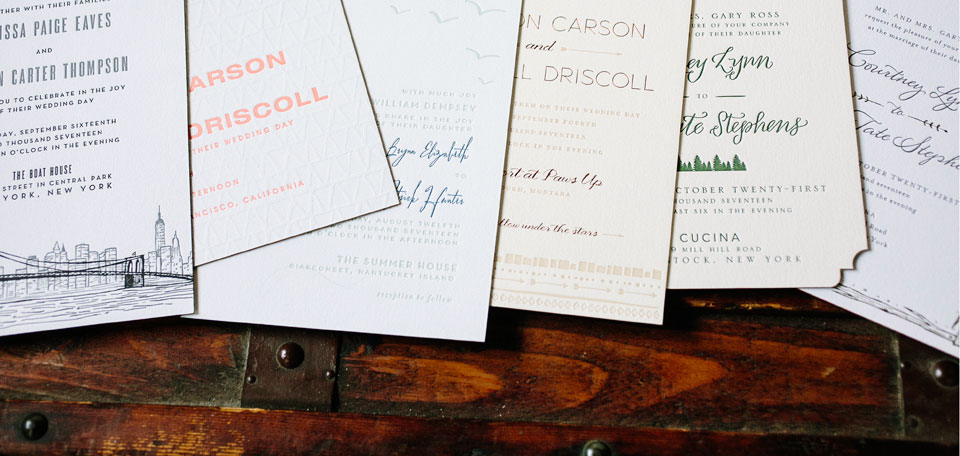 WITH THEIR FAMILIES
ISSA PAIGE EAVES
AND
CARTER THOMPSON
YOU TO CELEBRATE IN THE JOY
OF THEIR WEDDING DAY
DAY, SEPTEMBER SIXTEENTH
THOUSAND SEVENTEEN
O'CLOCK IN THE EVENING
THE BOAT HOUSE
STREET IN CENTRAL PARK
YORK, NEW YORK
ARSON
DRISCOLL
THEIR WEDDING DAY
ERNOON
NCISCO, CALIFORNIA
WITH MUCH JOY
WILLIAM DEMPSEY
SHARE IN THE JOY
THEIR DAUGHTER
Brynn Elizabeth
TO
Hunter
DAY, AUGUST TWELFTH
THOUSAND SEVENTEEN
O'CLOCK IN THE AFTERNOON
THE SUMMER HOUSE
SIASCONSET, NANTUCKET ISLAND
reception to follow
ON CARSON
and
LL DRISCOLL
THEM ON THEIR WEDDING DAY
SEPTEMBER FOURTH
THOUSAND SEVENTEEN
O'CLOCK IN THE EVENING
at Paws Up
MONTANA
follow under the stars
MRS. GARY ROSS
PLEASURE OF YOUR COMPANY
OF THEIR DAUGHTER
ey Lynn
TO
te Stephens
OCTOBER TWENTY-FIRST
THOUSAND SEVENTEEN
AST SIX IN THE EVENING
CUCINA
MILL HILL ROAD
STOCK, NEW YORK
MR. AND MRS. GARY
request the pleasure of your
at the marriage of their dau
Courtney Ly
to
Tate Steph
seventeen
in the evening